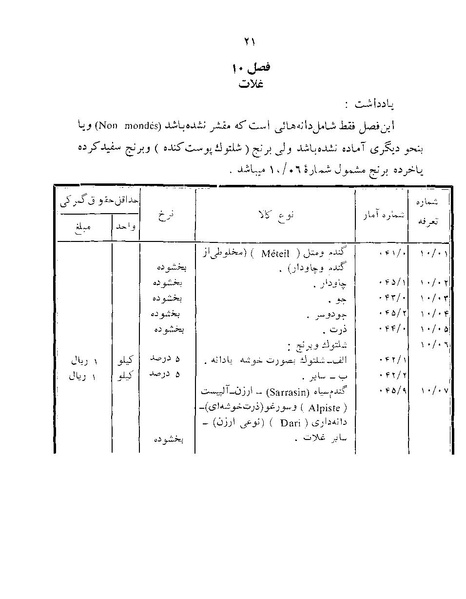 ۲۱
فصل ۱۰
غلات
یادداشت :
این فصل فقط شامل دانه‌هائی است که مقشر نشده باشد (Non mondés) و یا
بنحو دیگری آماده نشده باشد ولی برنج ( شلتوک پوست کنده ) و برنج سفید کرده
یا خرده برنج مشمول شمارهٔ ۱۰/۰۶ میباشد .
شماره تعرفه | شماره آمار | نوع کالا | نرخ | حداقل حقوق گمرکی
واحد | مبلغ
۱۰/۰۱ | ۰۴۱/۰ | گندم و متل ( Méteil ) (مخلوطی از
گندم و چاودار) . | بخشوده
۱۰/۰۲ | ۰۴۵/۱ | چاودار . | بخشوده
۱۰/۰۳ | ۰۴۳/۰ | جو . | بخشوده
۱۰/۰۴ | ۰۴۵/۲ | جودوسر . | بخشوده
۱۰/۰۵ | ۰۴۴/۰ | ذرت . | بخشوده
۱۰/۰۶ | شلتوک و برنج :
۰۴۲/۱ | الف - شلتوک بصورت خوشه یا دانه . | ۵ درصد | کیلو | ۱ ریال
۰۴۲/۲ | ب - سایر . | ۵ درصد | کیلو | ۱ ریال
۱۰/۰۷ | ۰۴۵/۹ | گندم سیاه (Sarrasin) - ارزن - آلپیست
( Alpiste ) و سورغو (ذرت خوشه‌ای) -
دانه داری ( Dari ) (نوعی ارزن) -
سایر غلات . | بخشوده